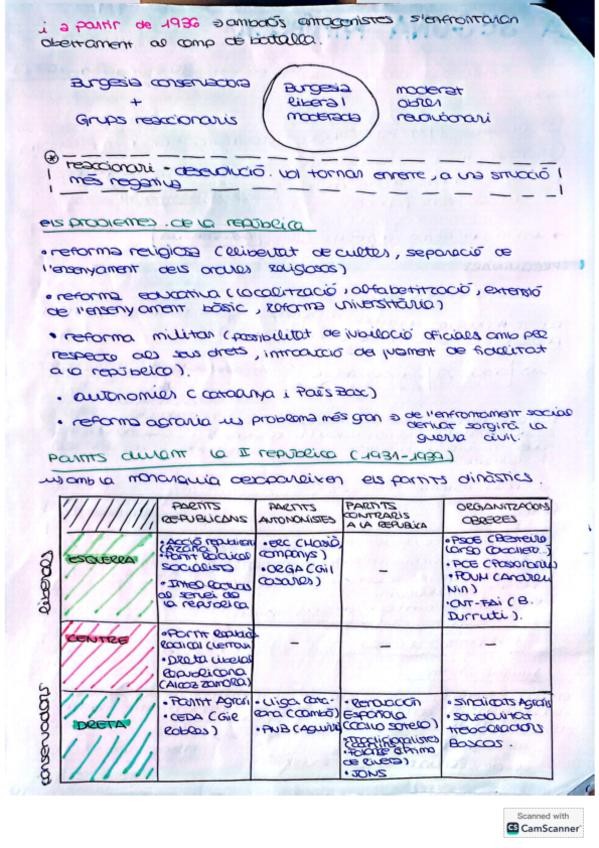 i a partir de 1936 → ambdós antagonistes s'enfrontaran
obertament al camp de batalla.
Burgesia conservadora
+
Grups reaccionaris
Burgesia
liberal
moderada
moderat
obrer
revolucionari
reaccionari - desevolució. Vol tornar enrere, a una situació
més negativa
els problemes de la república
• reforma religiosa (llibertat de cultes, separació de
l'ensenyament dels ordres religiosos)
• reforma educativa (localització, alfabetització, extensió
de l'ensenyament bàsic, reforma universitària)
• reforma militar (possibilitat de jubilació oficials amb per
respecte als seus drets, introducció del jurament de fidelitat
a la república).
• autonomies (Catalunya i País Basc)
• reforma agraria problema més gran → de l'enfrontament social
derivat sorgirà la
guerra civil.
Partits durant la II república (1931-1939)
amb la monarquia desapareixen els partits dinàstics.
PARTITS
REPUBLICANS
PARTITS
AUTONOMISTES
PARTITS
CONTRARIS
A LA REPÚBLICA
ORGANITZACIONS
OBRERES
liberals
ESQUERRA
• Acció republicana
(Azaña)
• Partit Radical
socialista
• Intel·lectuals
al servei de
la república
• ERC (Macià,
Companys)
• ORGA (Gil
Casares)
-
• PSOE (Besteiro
Largo Caballero)
• PCE (Pasionaria)
• POUM (Andreu
Nin)
• CNT-FAI (B.
Durruti).
CENTRE
• Partit Republicà
Radical (Lerroux)
• Dreta Liberal
Republicana
(Alcaz Zamora)
-
-
-
conservadors
DRETA
• Partit Agrari
• CEDA (Gil
Robles)
• Lliga Cata-
lana (Cambó)
• PNB (Aguirre)
• Renovación
Española
(Calvo Sotelo)
• Tradicionalistes
• Falange (Primo
de Rivera)
• JONS
• Sindicats Agraris
• Solidaritat
Treballadors
Bascos.
Scanned with
CS CamScanner